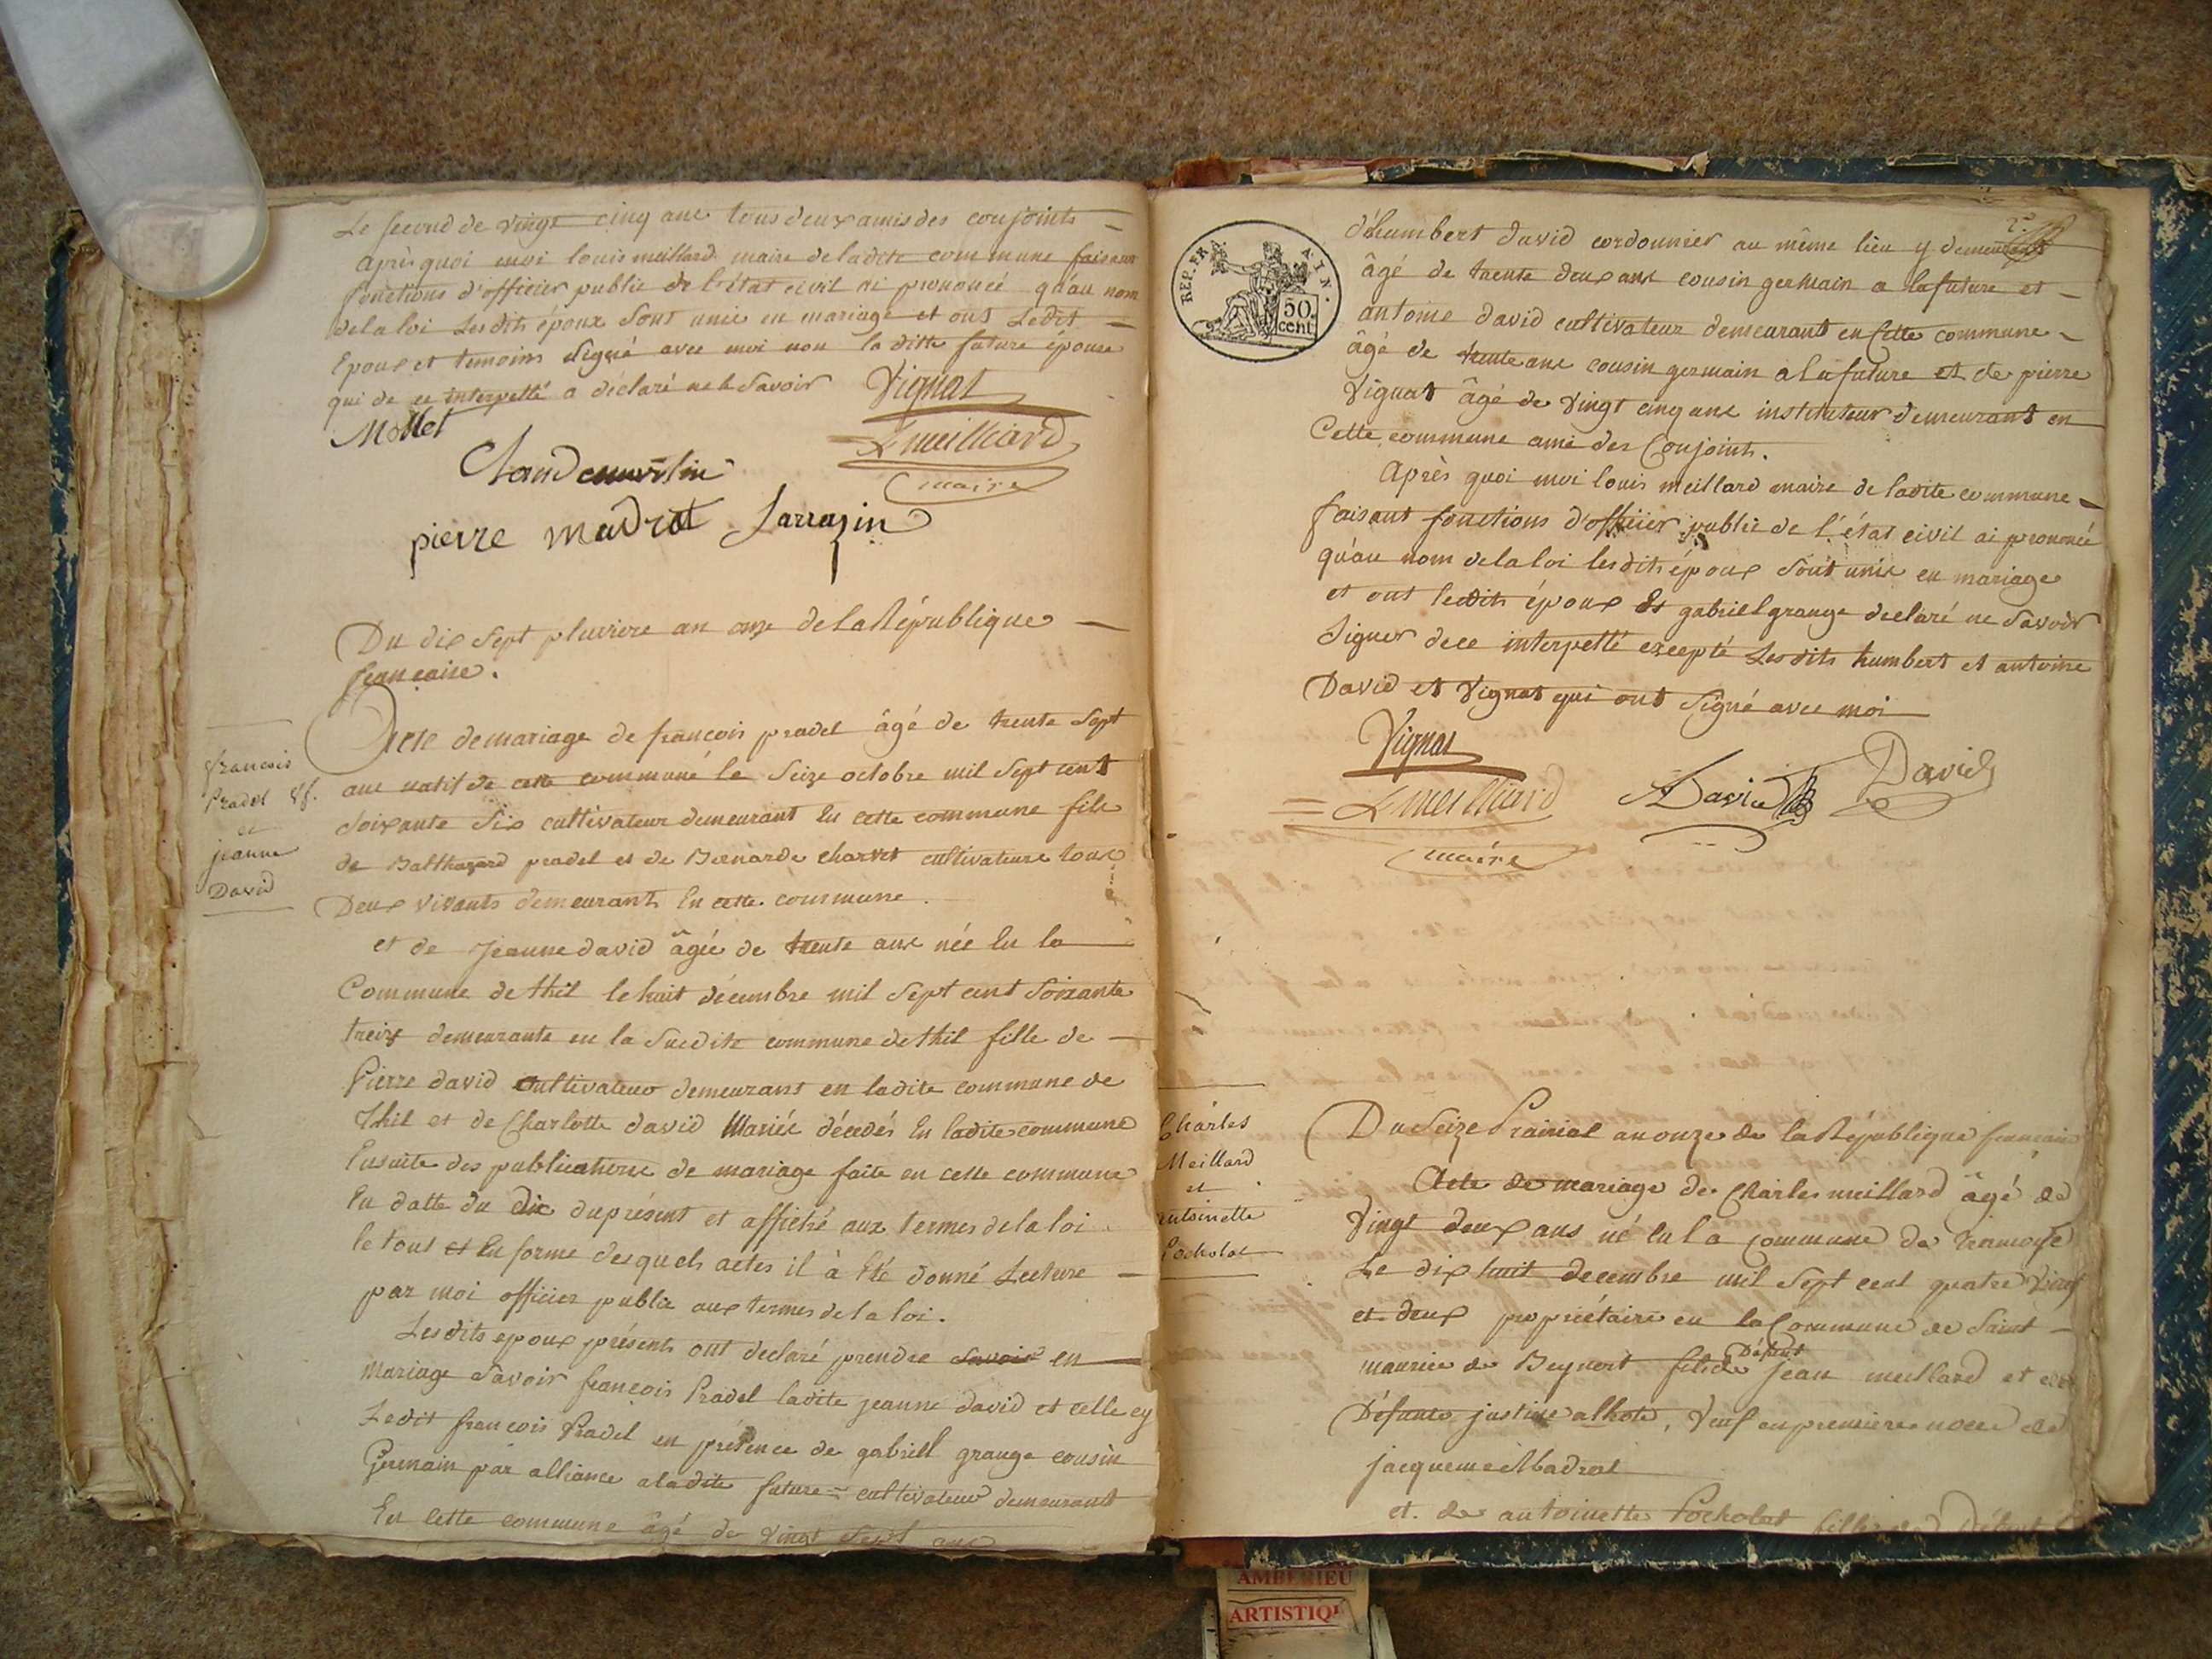 Le second de vingt cinq ans tous deux amis des conjoints
après quoi moi louis meillard maire de ladite commune faisant
fonctions d'officier public de l'état civil ai prononcé qu'au nom
de la loi Lesdits époux sont unis en mariage et ont Ledit
Epoux et temoins signé avec moi non la ditte future épouse
qui de ce interpellé a déclaré ne le savoir
Vignat
Mollet
L meilliard
maire
Claude
pierre madrat Sarrazin
Du dix sept pluviose an onze de la République
françaire.
francois
Pradel
et
jeanne
David
Acte de mariage de francois pradel âgé de trente sept
ans natif de cette commune le seize octobre mil sept cent
soixante six cultivateur demeurant En cette commune fils
de Balthazard pradel et de Bernarde charvet cultivateurs tous
Deux vivants demeurants En cette commune.
et de jeanne david âgée de trente ans née En la
Commune de thil le huit décembre mil sept cent soixante
treize demeurante en la susdite commune de thil fille de
Pierre david cultivateur demeurant en ladite commune de
Thil et de Charlotte david Mariés décédés En ladite commune
Ensuite des publications de mariage faite en cette commune
En datte du dix du présent et affiché aux termes de la loi
le tout et En forme desquels actes il à Eté donné Lecture
par moi officier public aux termes de la loi.
Lesdits epoux présents ont declaré prendre savoir en
mariage savoir françois Pradel ladite jeanne david et celle cy
Ledit francois Pradel en présence de gabriell grange cousin
Germain par alliance a ladite future cultivateur demeurant
En Cette commune âgé de vingt sept ans
REP. FRA. AIN.
50 cent
d'humbert david cordonnier au même lieu y demeurant
âgé de trente deux ans cousin germain a la future et
antoine david cultivateur demeurant en Cette commune
âgé de trente ans cousin germain a la future et de pierre
Vignat âgé de vingt cinq ans instituteur demeurant en
Cette commune ami des Conjoints.
Après quoi moi louis meillard maire de ladite commune
faisant fonctions d'officier public de l'état civil ai prononcé
qu'au nom de la loi lesdits époux sont unis en mariage
et ont lesdits époux et gabriel grange declaré ne savoir
signer de ce interpellé excepté Lesdits humbert et antoine
David et Vignat qui ont signé avec moi
Vignat
L meilliard
maire
David
David
Charles
Meillard
et
antoinette
Pocholat
Du seize Prairial an onze de la République francaise
Acte de mariage de Charles meillard âgé de
Vingt deux ans né En la commune de
Le dix huit decembre mil sept cent quatre vingt
et deux propriétaire en la Commune de Saint
maurice de Beynost fils de Défunt jean meillard et de
Défunte justine , Veuf en premieres noces de
jacqueme Madrat
et de antoinette Pocholat fille de Défunt
AMBERIEU
ARTISTIQU